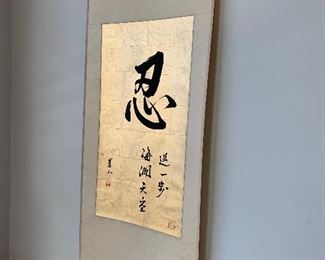 忍
退一步
海濶天空